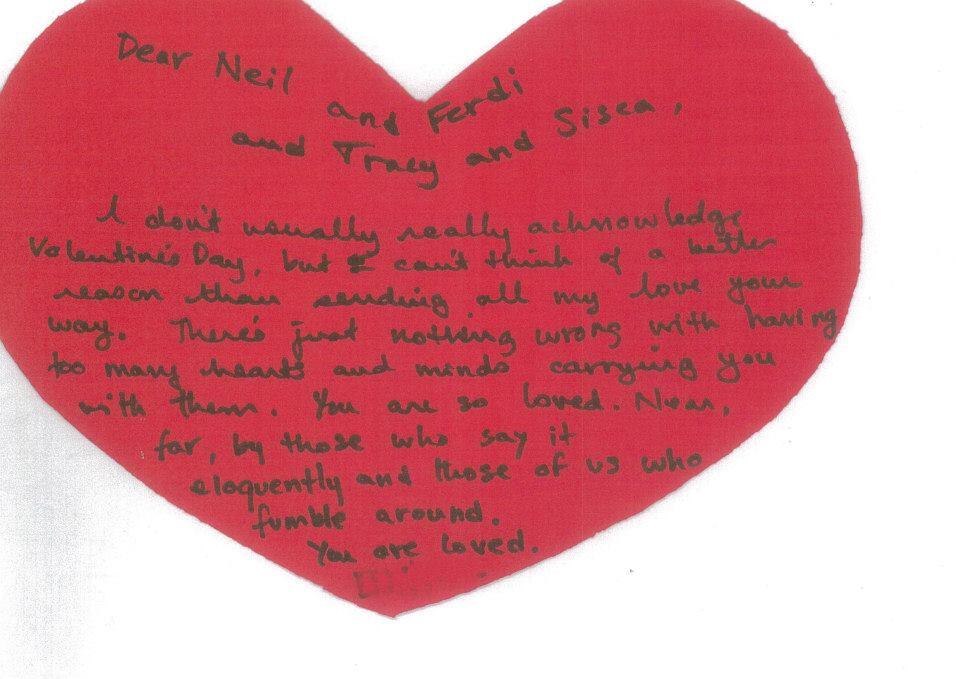 Dear Neil
and Ferdi
and Tracy and Sisea,
I don't usually really acknowledge
Valentine's Day, but I can't think of a better
reason than sending all my love your
way. There's just nothing wrong with having
too many hearts and minds carrying you
with them. You are so loved. Near,
far, by those who say it
eloquently and those of us who
fumble around.
You are loved.